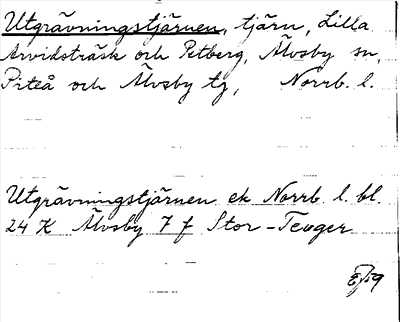 Utgrävningstjärnen, tjärn, Lilla
Arvidsträsk och Petberg, Älvsby sn,
Piteå och Älvsby tg, Norrb. l.
Utgrävningstjärnen ek Norrb. l. bl.
24 K Älvsby 7 f Stor-Teuger